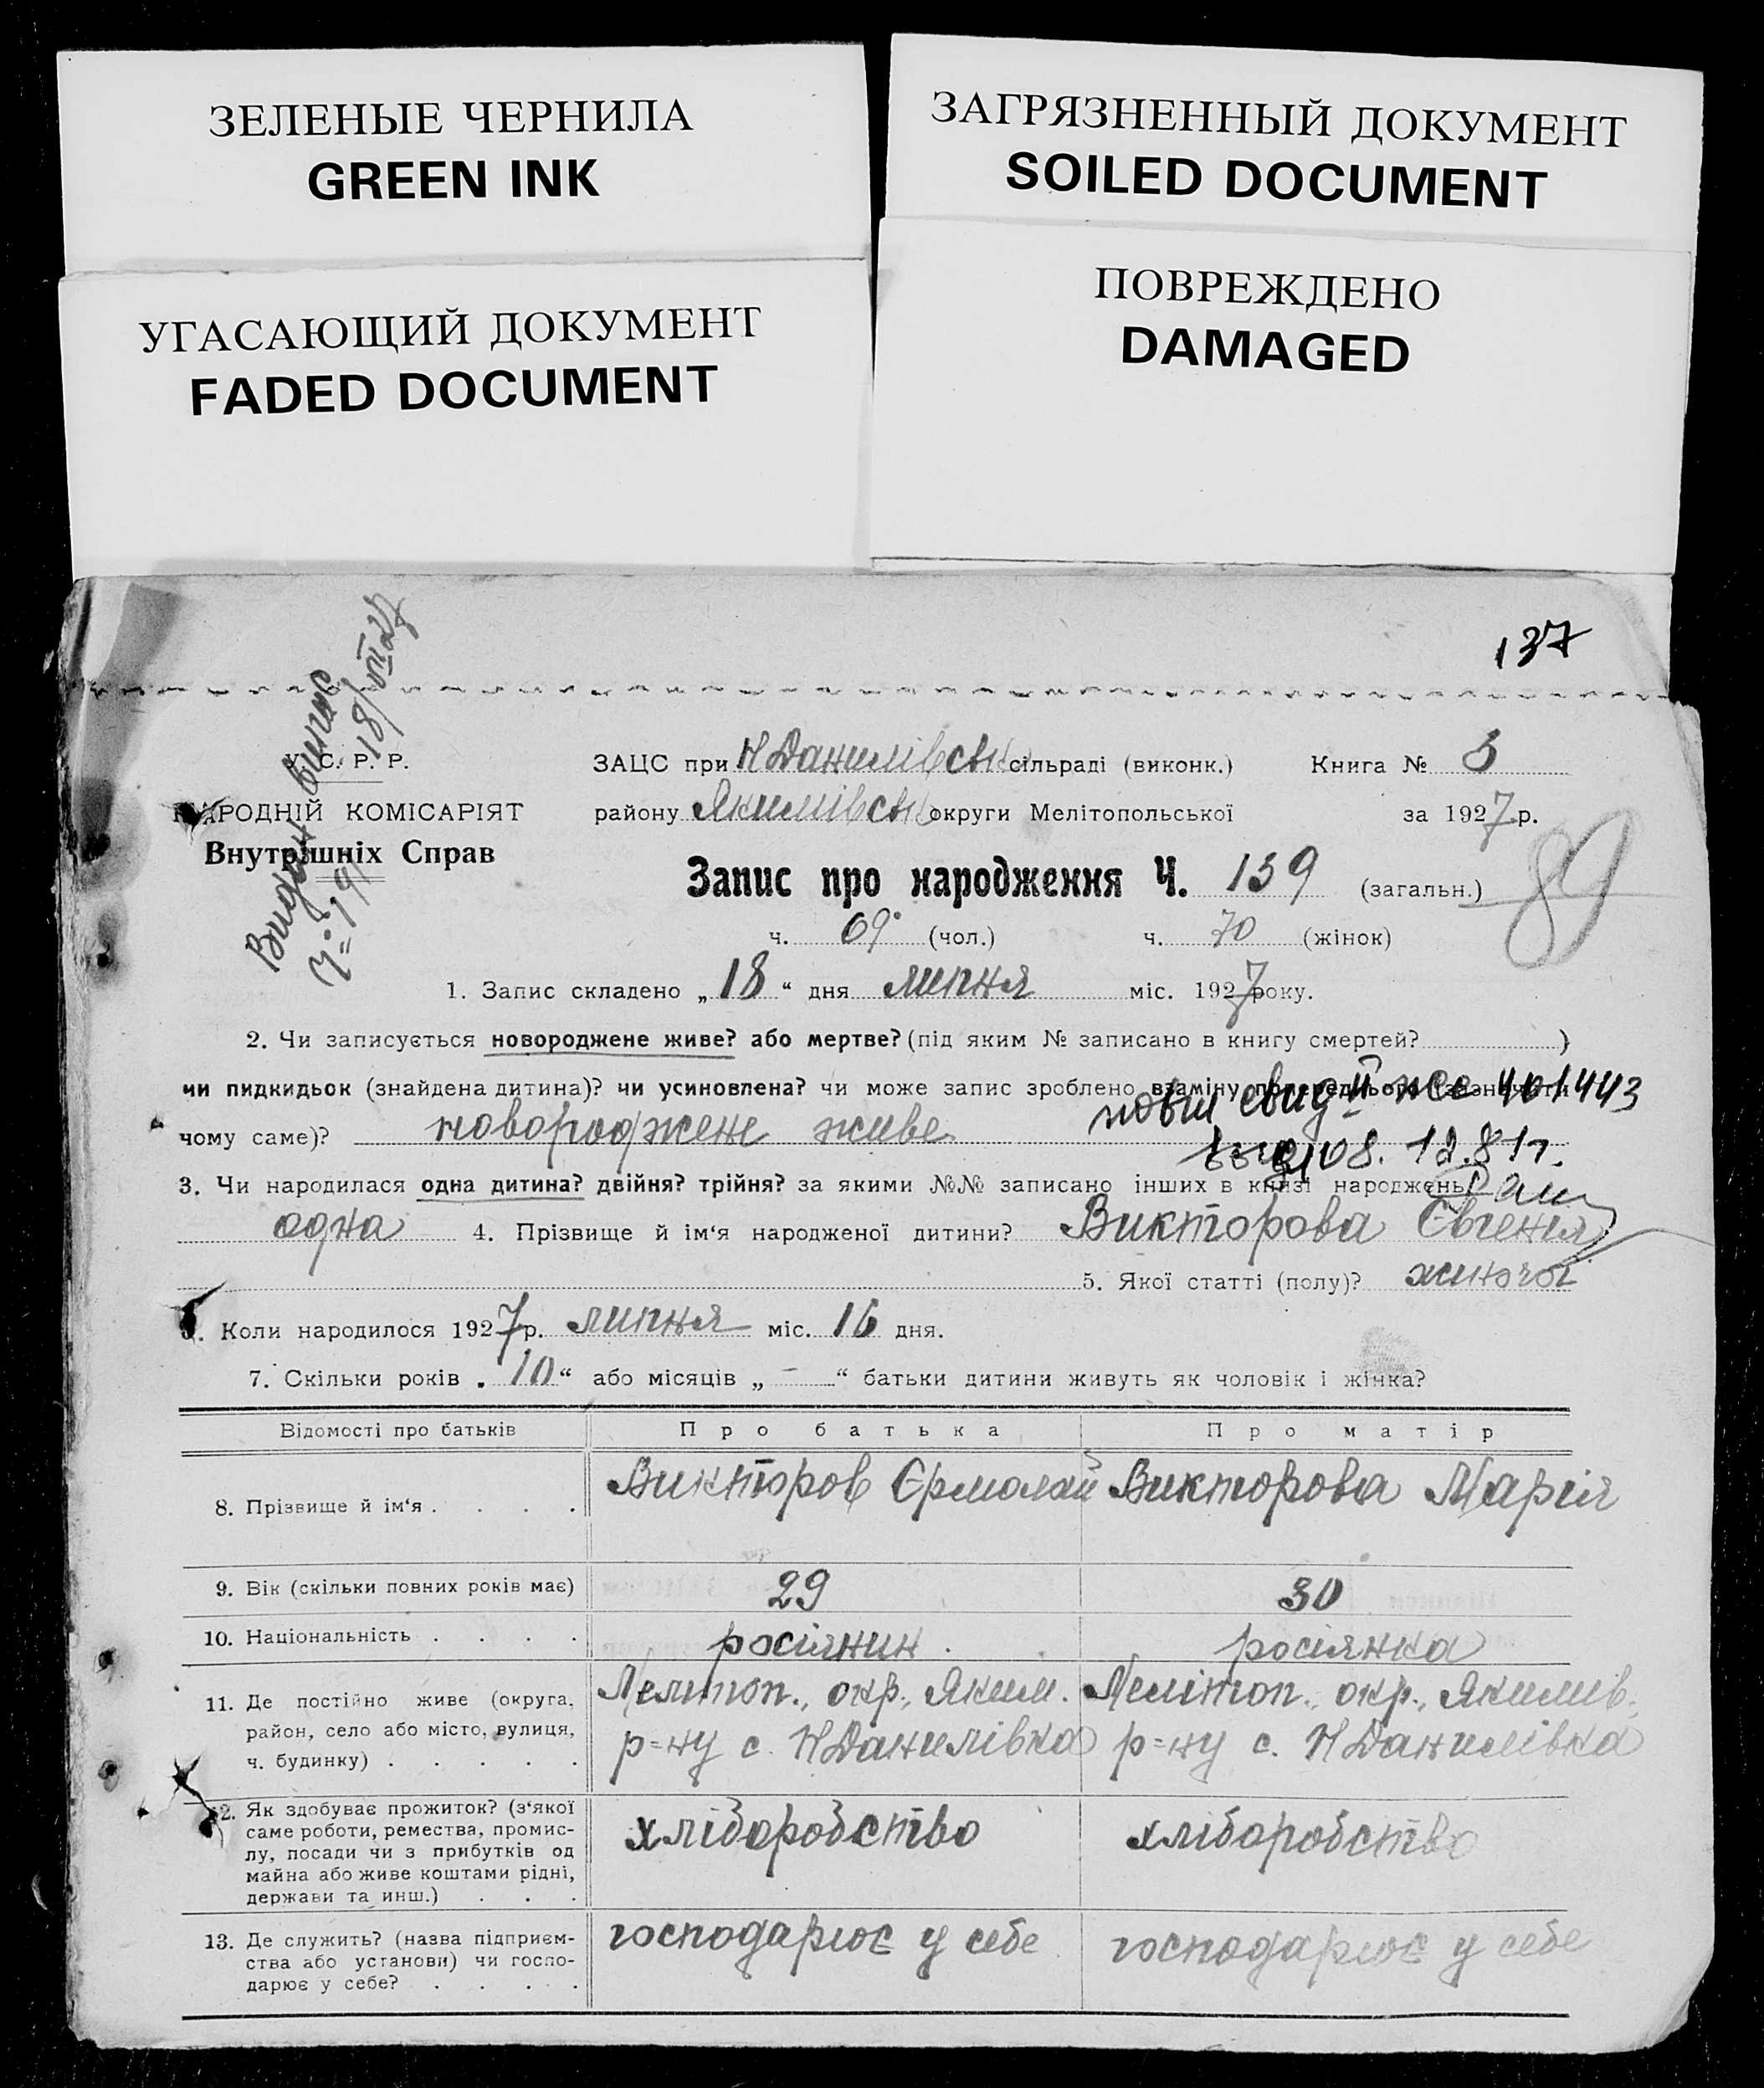 ЗЕЛЕНЫЕ ЧЕРНИЛА
GREEN INK
ЗАГРЯЗНЕННЫЙ ДОКУМЕНТ
SOILED DOCUMENT
УГАСАЮЩИЙ ДОКУМЕНТ
FADED DOCUMENT
ПОВРЕЖДЕНО
DAMAGED
137
Видан випис
Ч=19
18/VII 27
У. С. Р. Р.
НАРОДНІЙ КОМІСАРІЯТ
Внутрішніх Справ
ЗАЦС при Н Данилівськ сільраді (виконк.) Книга № 3
району Якимівськ округи Мелітопольської за 1927 р.
Запис про народження Ч. 139 (загальн.)
89
ч. 69 (чол.) ч. 70 (жінок)
1. Запис складено „18“ дня липня міс. 1927 року.
2. Чи записується новороджене живе? або мертве? (під яким № записано в книгу смертей? )
чи пидкидьок (знайдена дитина)? чи усиновлена? чи може запис зроблено взаміну попереднього (зазначити
чому саме)? новороджене живе
новый свид 401443
08. 12. 81г.
3. Чи народилася одна дитина? двійня? трійня? за якими №№ записано інших в книзі народжень?
одна 4. Прізвище й ім‘я народженої дитини? Викторова Євгенія
5. Якої статті (полу)? жиночої
6. Коли народилося 1927 р. липня міс. 16 дня.
7. Скільки років „10“ або місяців „ - “ батьки дитини живуть як чоловік і жінка?
Відомості про батьків Про батька Про матір
8. Прізвище й ім‘я . . . . Викторов Єрмолай Викторова Марія
9. Вік (скільки повних років має) 29 30
10. Національність . . . . росіянин . росіянка
11. Де постійно живе (округа, Мелітоп., окр., Яким. Мелітоп., окр., Якимів.
район, село або місто, вулиця, р=ну с. Н Данилівка р=ну с. Н Данилівка
ч. будинку) . . . . .
12. Як здобуває прожиток? (з‘якої
саме роботи, ремества, промис- хліборобство хліборобство
лу, посади чи з прибутків од
майна або живе коштами рідні,
держави та инш.) . . .
13. Де служить? (назва підприєм- господарює у себе господарює у себе
ства або установи) чи госпо-
дарює у себе? . . . .